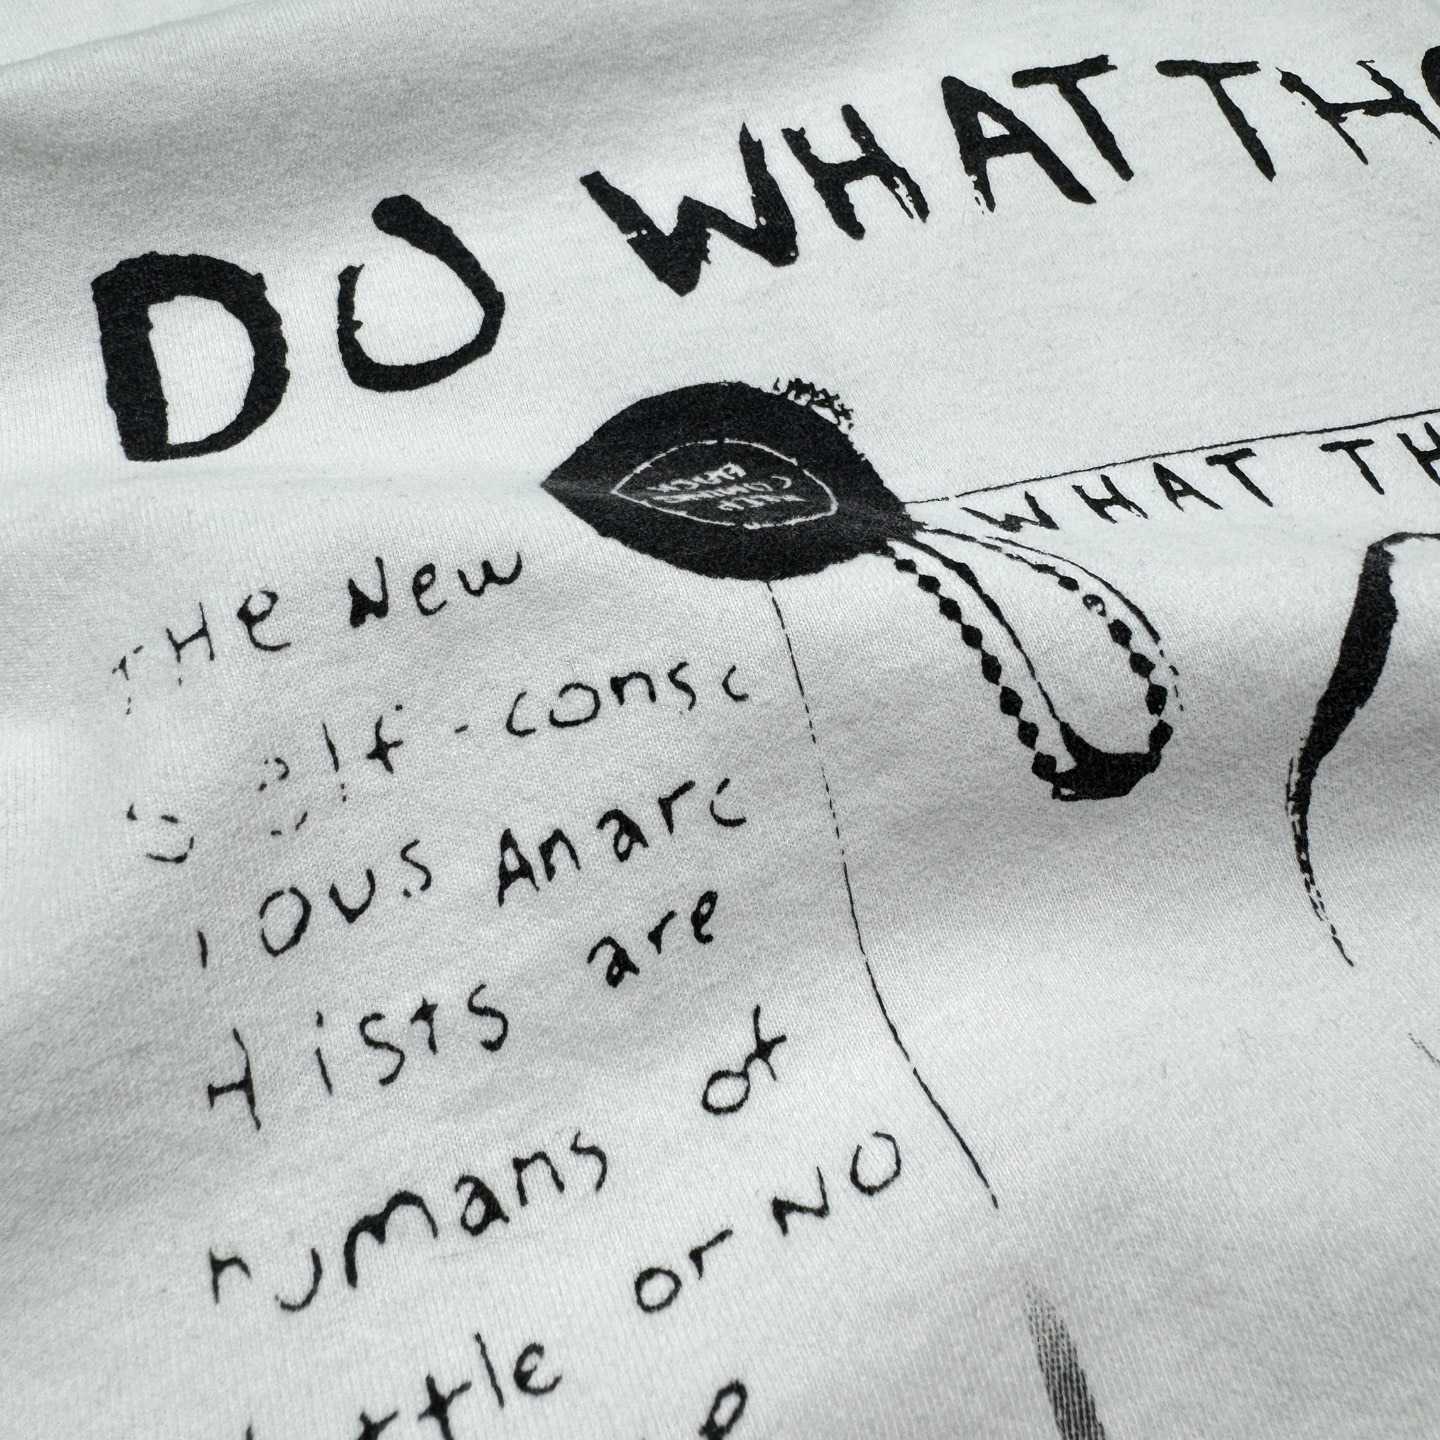 DO WHAT THO
WHAT TH
THE New
Self-consc
ious Anarc
Hists are
Humans of
little or NO